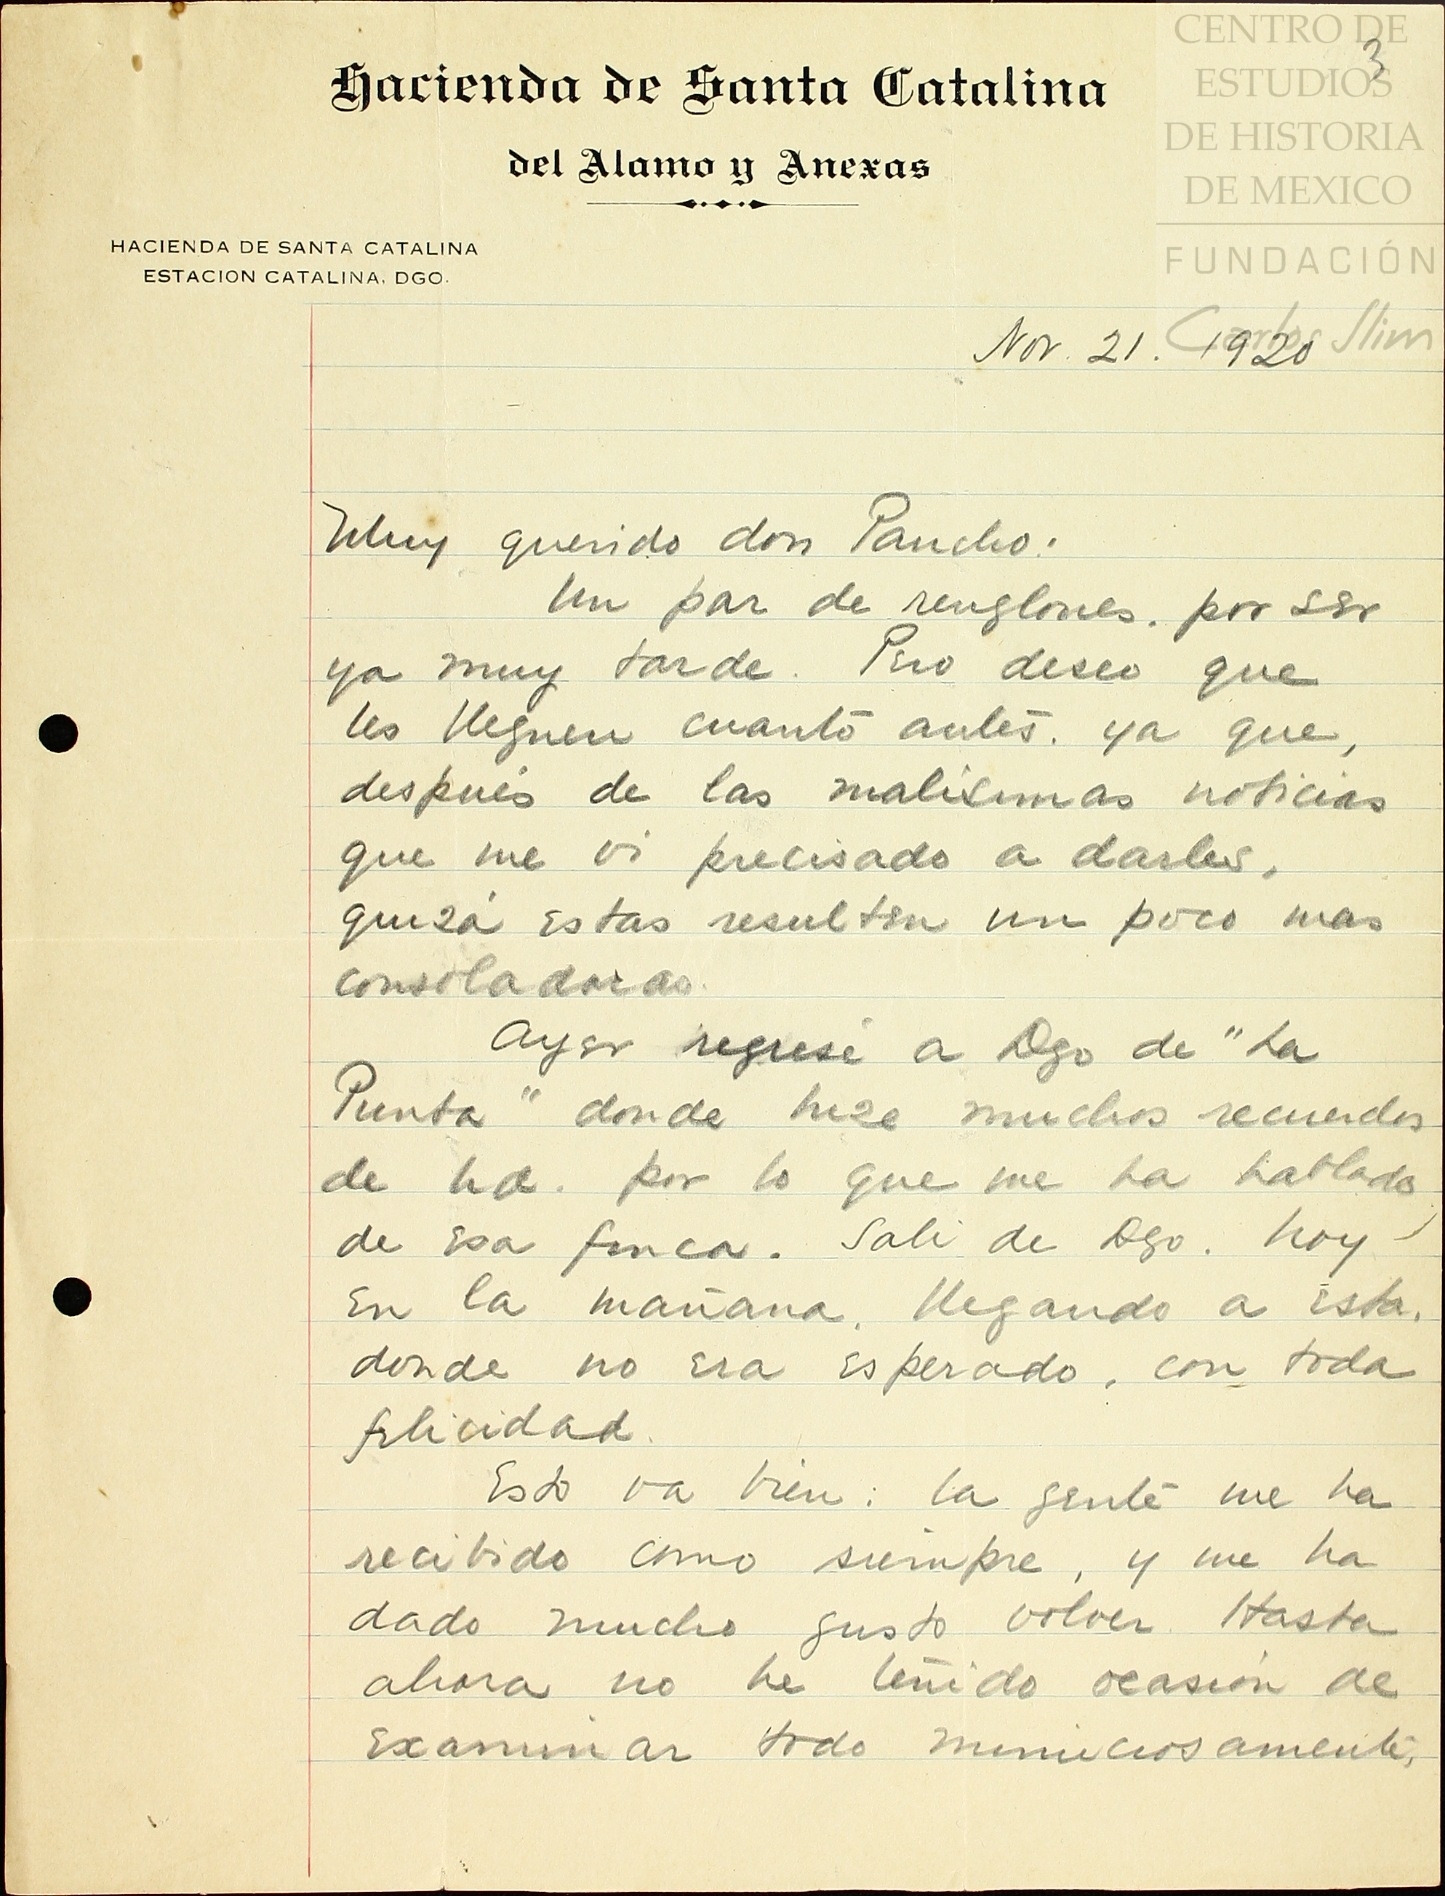 CENTRO DE
ESTUDIOS
DE HISTORIA
DE MEXICO
FUNDACIÓN
Carlos Slim
3
Hacienda de Santa Catalina
del Alamo y Anexas
HACIENDA DE SANTA CATALINA
ESTACION CATALINA, DGO.
Nov. 21. 1920
Muy querido don Pancho:
Un par de renglones, por ser
ya muy tarde. Pero deseo que
les lleguen cuanto antes, ya que,
después de las malísimas noticias
que me vi precisado a darles,
quizá estas resulten un poco mas
consoladoras.
Ayer regresé a Dgo de "La
Punta" donde hize muchos recuerdos
de Ud. por lo que me ha hablado
de esa finca. Salí de Dgo. hoy
en la mañana, llegando a ésta,
donde no era esperado, con toda
felicidad.
Esto va bien: la gente me ha
recibido como siempre, y me ha
dado mucho gusto volver. Hasta
ahora no he tenido ocasión de
examinar todo minuciosamente,